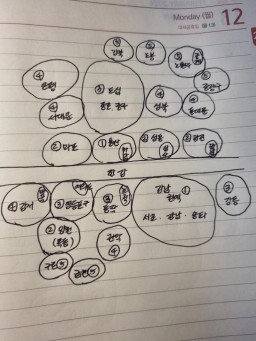 Monday (월) 12
⑤ 강북
③ 도봉
⑤ 노원구
④ 은평
⑤ 도심
종로, 중구
④ 서대문
④ 성북
④ 동대문
② 마포
① 용산
② 성동
② 광진
한강
④ 강서
③ 영등포구
③ 동작
강남
권역
서초 · 강남 · 송파
③ 강동
② 양천
(목동)
관악
④
구로 ⑤
금천 ⑤